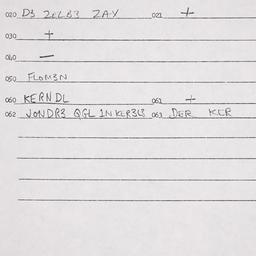 020 D3 2ELB3 ZAY 021 +
030 +
040 —
050 FLOM3N
060 KERNDL 061 +
062 JONDR3 QGL 1NKER3L3 063 DER KER